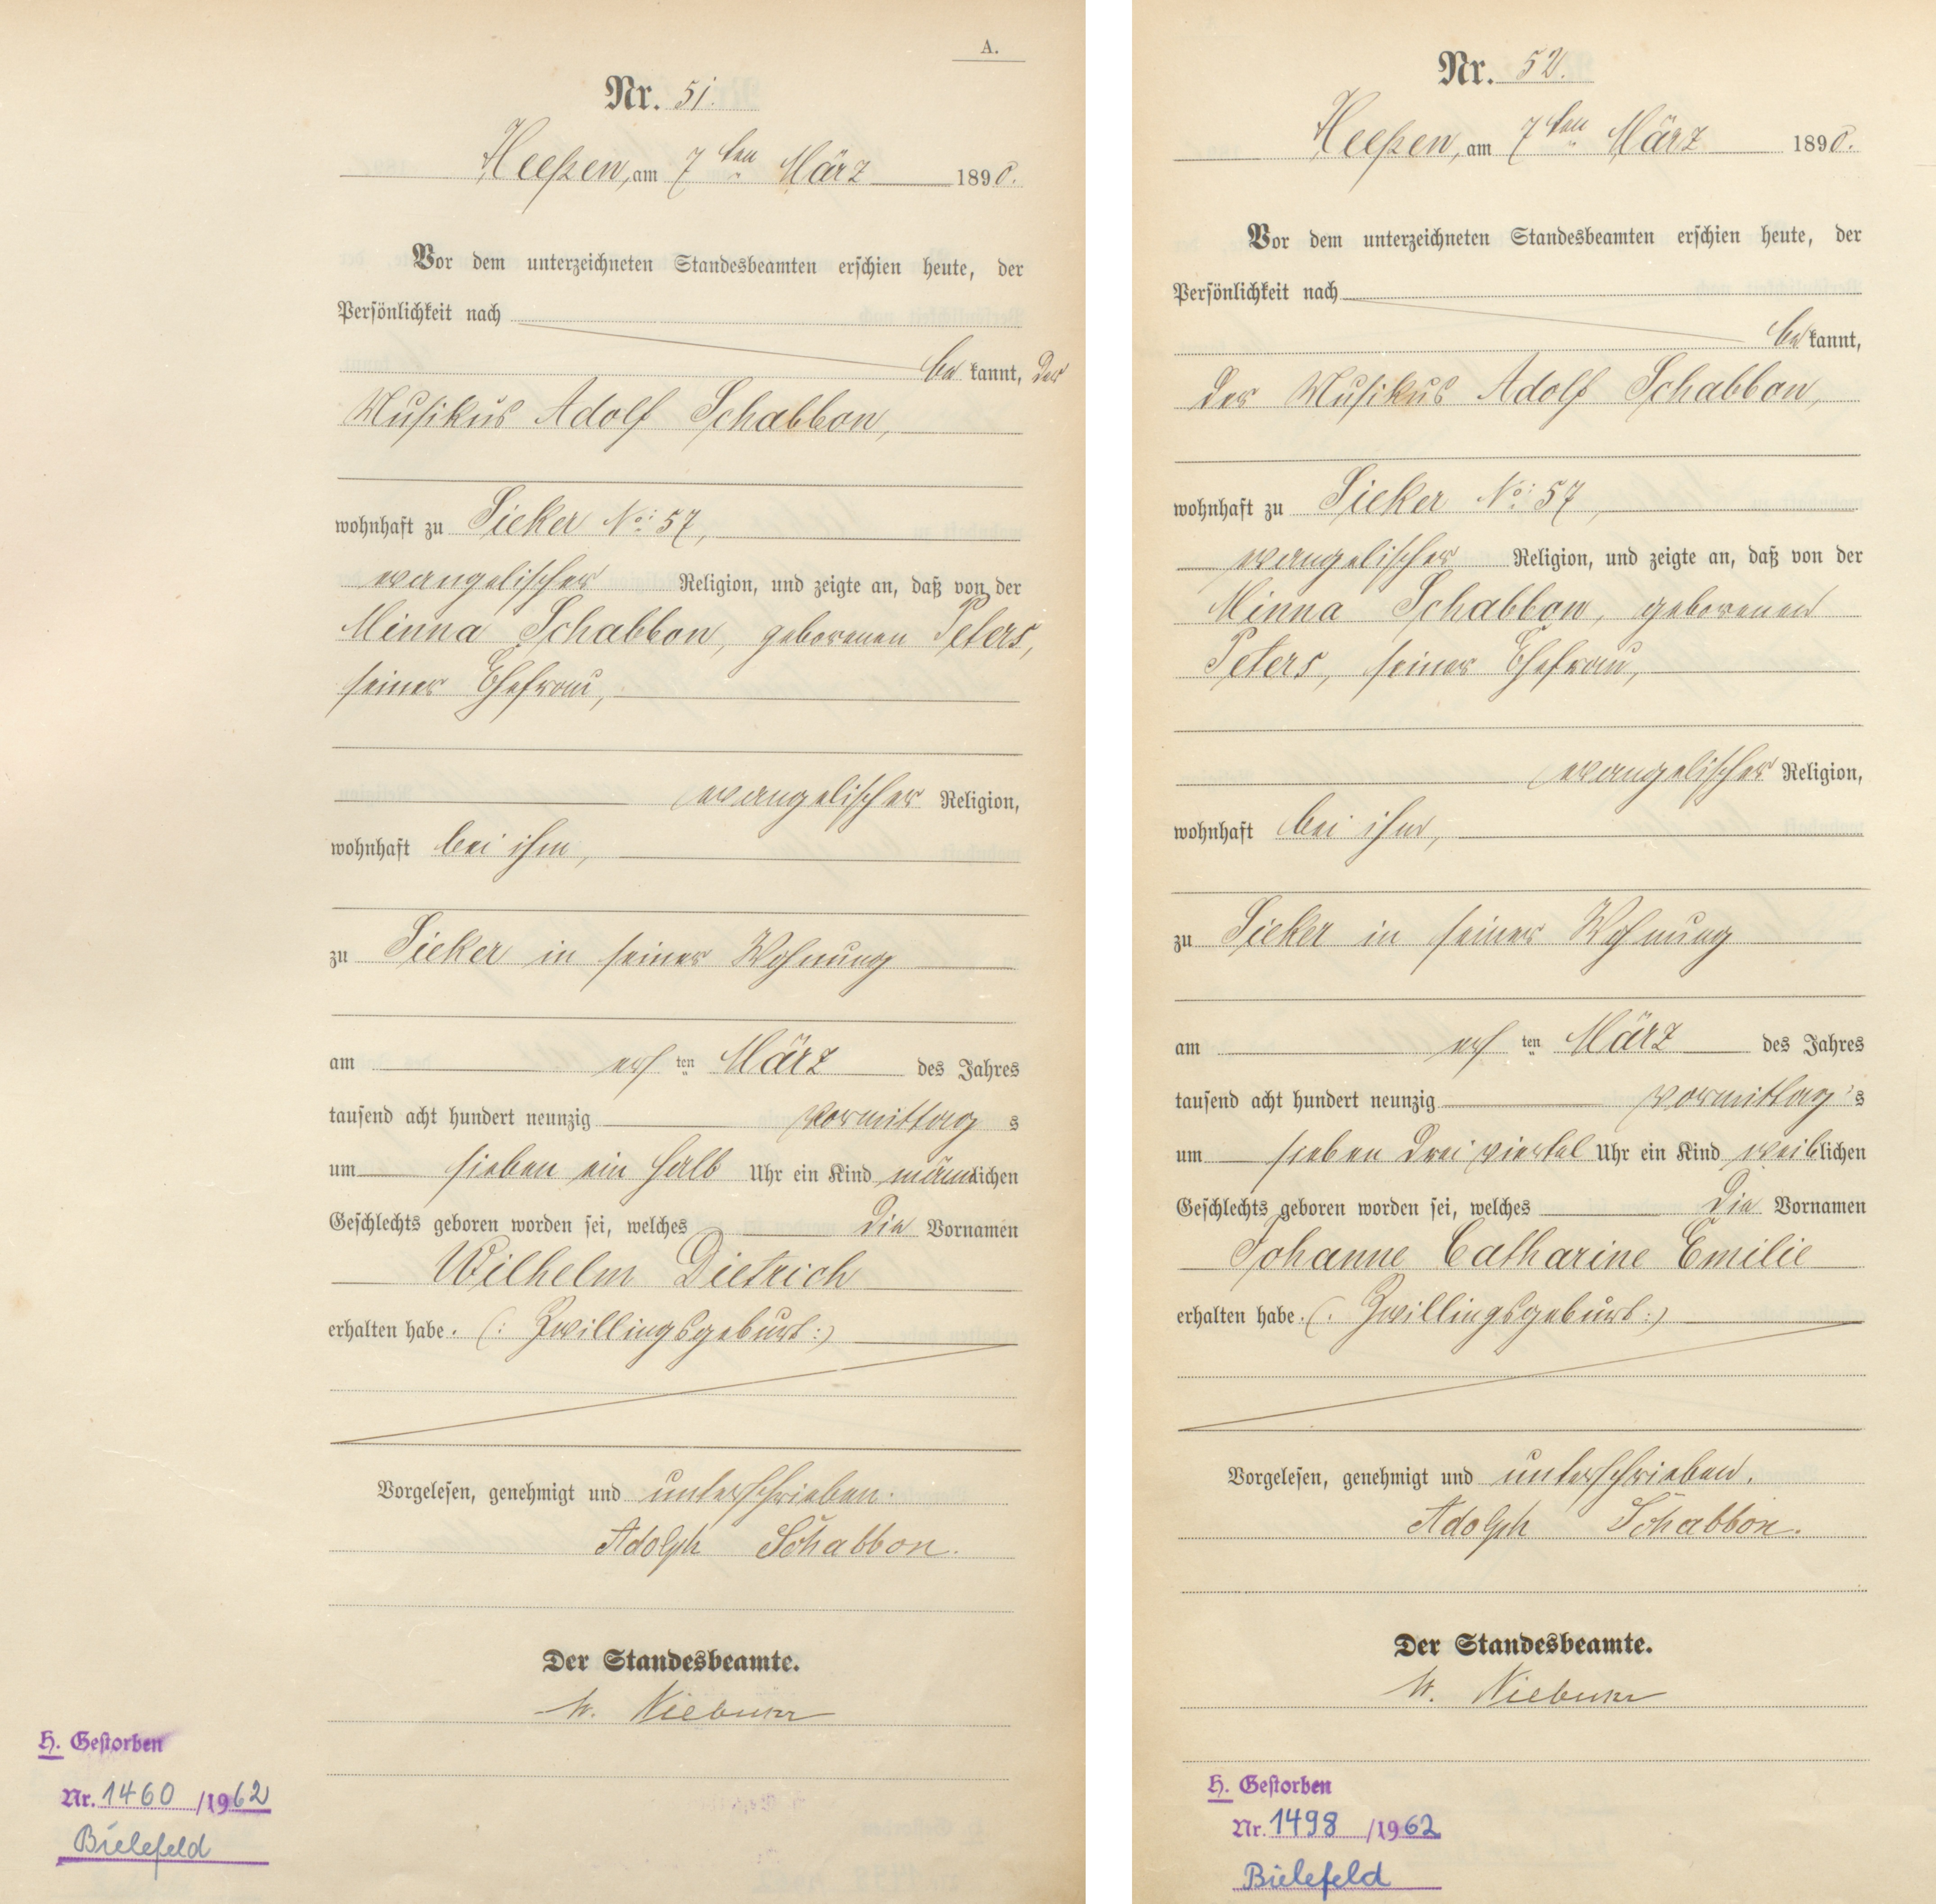 A.
Nr. 51.
Heepen, am 7ten März 1890.
Vor dem unterzeichneten Standesbeamten erschien heute, der
Persönlichkeit nach
be kannt, der
Musikus Adolf Schabbon,
wohnhaft zu Sieker No: 57,
evangelischer Religion, und zeigte an, daß von der
Minna Schabbon, geborenen Peters,
seiner Ehefrau,
evangelischer Religion,
wohnhaft bei ihm,
zu Sieker in seiner Wohnung
am ersten März des Jahres
tausend acht hundert neunzig Vormittag s
um sieben ein halb Uhr ein Kind männlichen
Geschlechts geboren worden sei, welches die Vornamen
Wilhelm Dietrich
erhalten habe. (: Zwillingsgeburt :)
Vorgelesen, genehmigt und unterschrieben.
Adolph Schabbon.
Der Standesbeamte.
W. Niebuhr
H. Gestorben
Nr. 1460 /1962
Bielefeld
Nr. 52.
Heepen, am 7ten März 1890.
Vor dem unterzeichneten Standesbeamten erschien heute, der
Persönlichkeit nach
be kannt,
der Musikus Adolf Schabbon,
wohnhaft zu Sieker No: 57,
evangelischer Religion, und zeigte an, daß von der
Minna Schabbon, geborenen
Peters, seiner Ehefrau,
evangelischer Religion,
wohnhaft bei ihm,
zu Sieker in seiner Wohnung
am ersten März des Jahres
tausend acht hundert neunzig Vormittag's
um sieben drei viertel Uhr ein Kind weiblichen
Geschlechts geboren worden sei, welches die Vornamen
Johanne Catharine Emilie
erhalten habe. (: Zwillingsgeburt :)
Vorgelesen, genehmigt und unterschrieben.
Adolph Schabbon.
Der Standesbeamte.
W. Niebuhr
H. Gestorben
Nr. 1498 /1962
Bielefeld